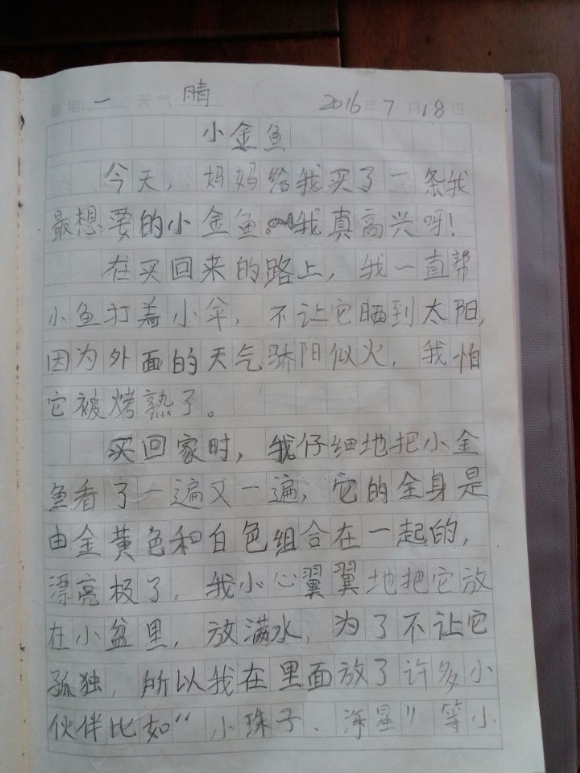 星期：一 天气 晴 2016年7月18日
小金鱼
今天，妈妈给我买了一条我
最想要的小金鱼。我真高兴呀！
在买回来的路上，我一直帮
小鱼打着小伞，不让它晒到太阳，
因为外面的天气骄阳似火，我怕
它被烤熟了。
买回家时，我仔细地把小金
鱼看了一遍又一遍，它的全身是
由金黄色和白色组合在一起的，
漂亮极了，我小心翼翼地把它放
在小盆里，放满水，为了不让它
孤独，所以我在里面放了许多小
伙伴比如“小珠子、海星”等小